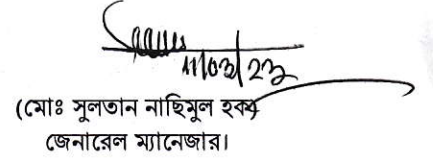 11/03/23
(মোঃ সুলতান নাছিমুল হক)
জেনারেল ম্যানেজার।